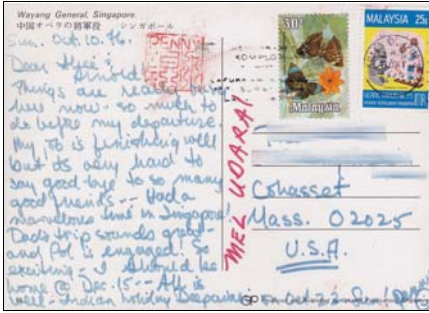 Wayang General, Singapore.
中国オペラの将軍役 シンガポール
Sun. Oct. 10. 76
Dear Alice &
Arnold
Things are really
here now - so much to
do before my departure
My job is finishing well
but its very hard to
say good-bye to so many
good friends -- Had a
marvelous time in Singapore!
Dad's trip sounds great -
and Pol is engaged! So
exciting - I should be
home @ Dec. 15 -- All is
well - Indian holiday Deepavali
on Oct 22
PENNY
MEL UDARA!
30¢
Malaysia
MALAYSIA 25¢
Cohasset
Mass. 02025
U.S.A.